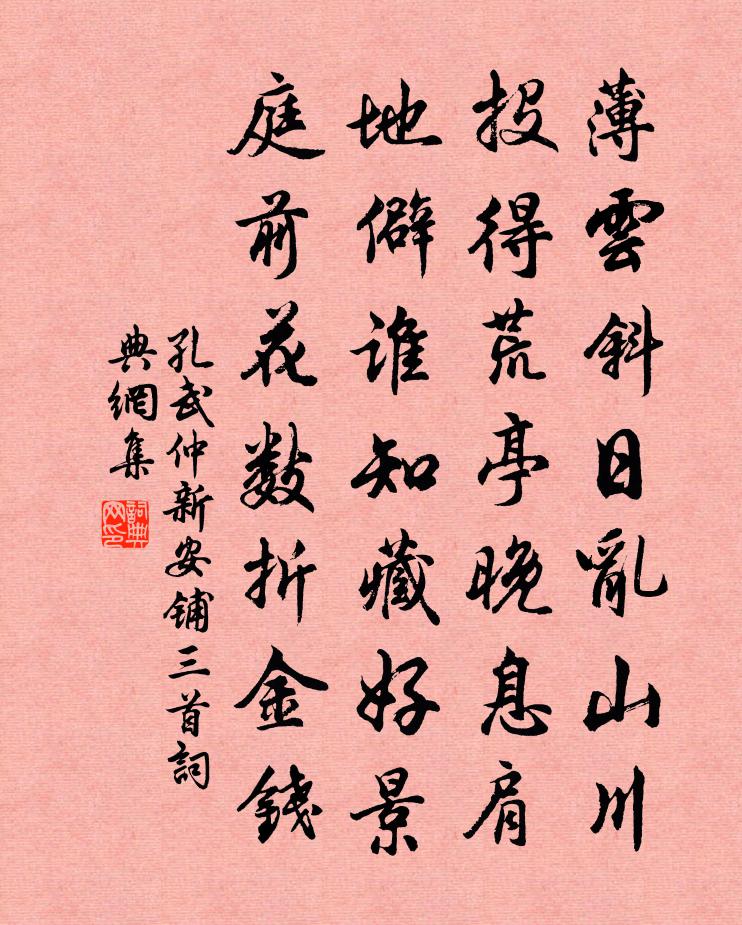 薄雲斜日亂山川
投得荒亭晚息肩
地僻誰知藏好景
庭前花数折金錢
孔武仲新安铺三首詞
典網集
詞典
网印